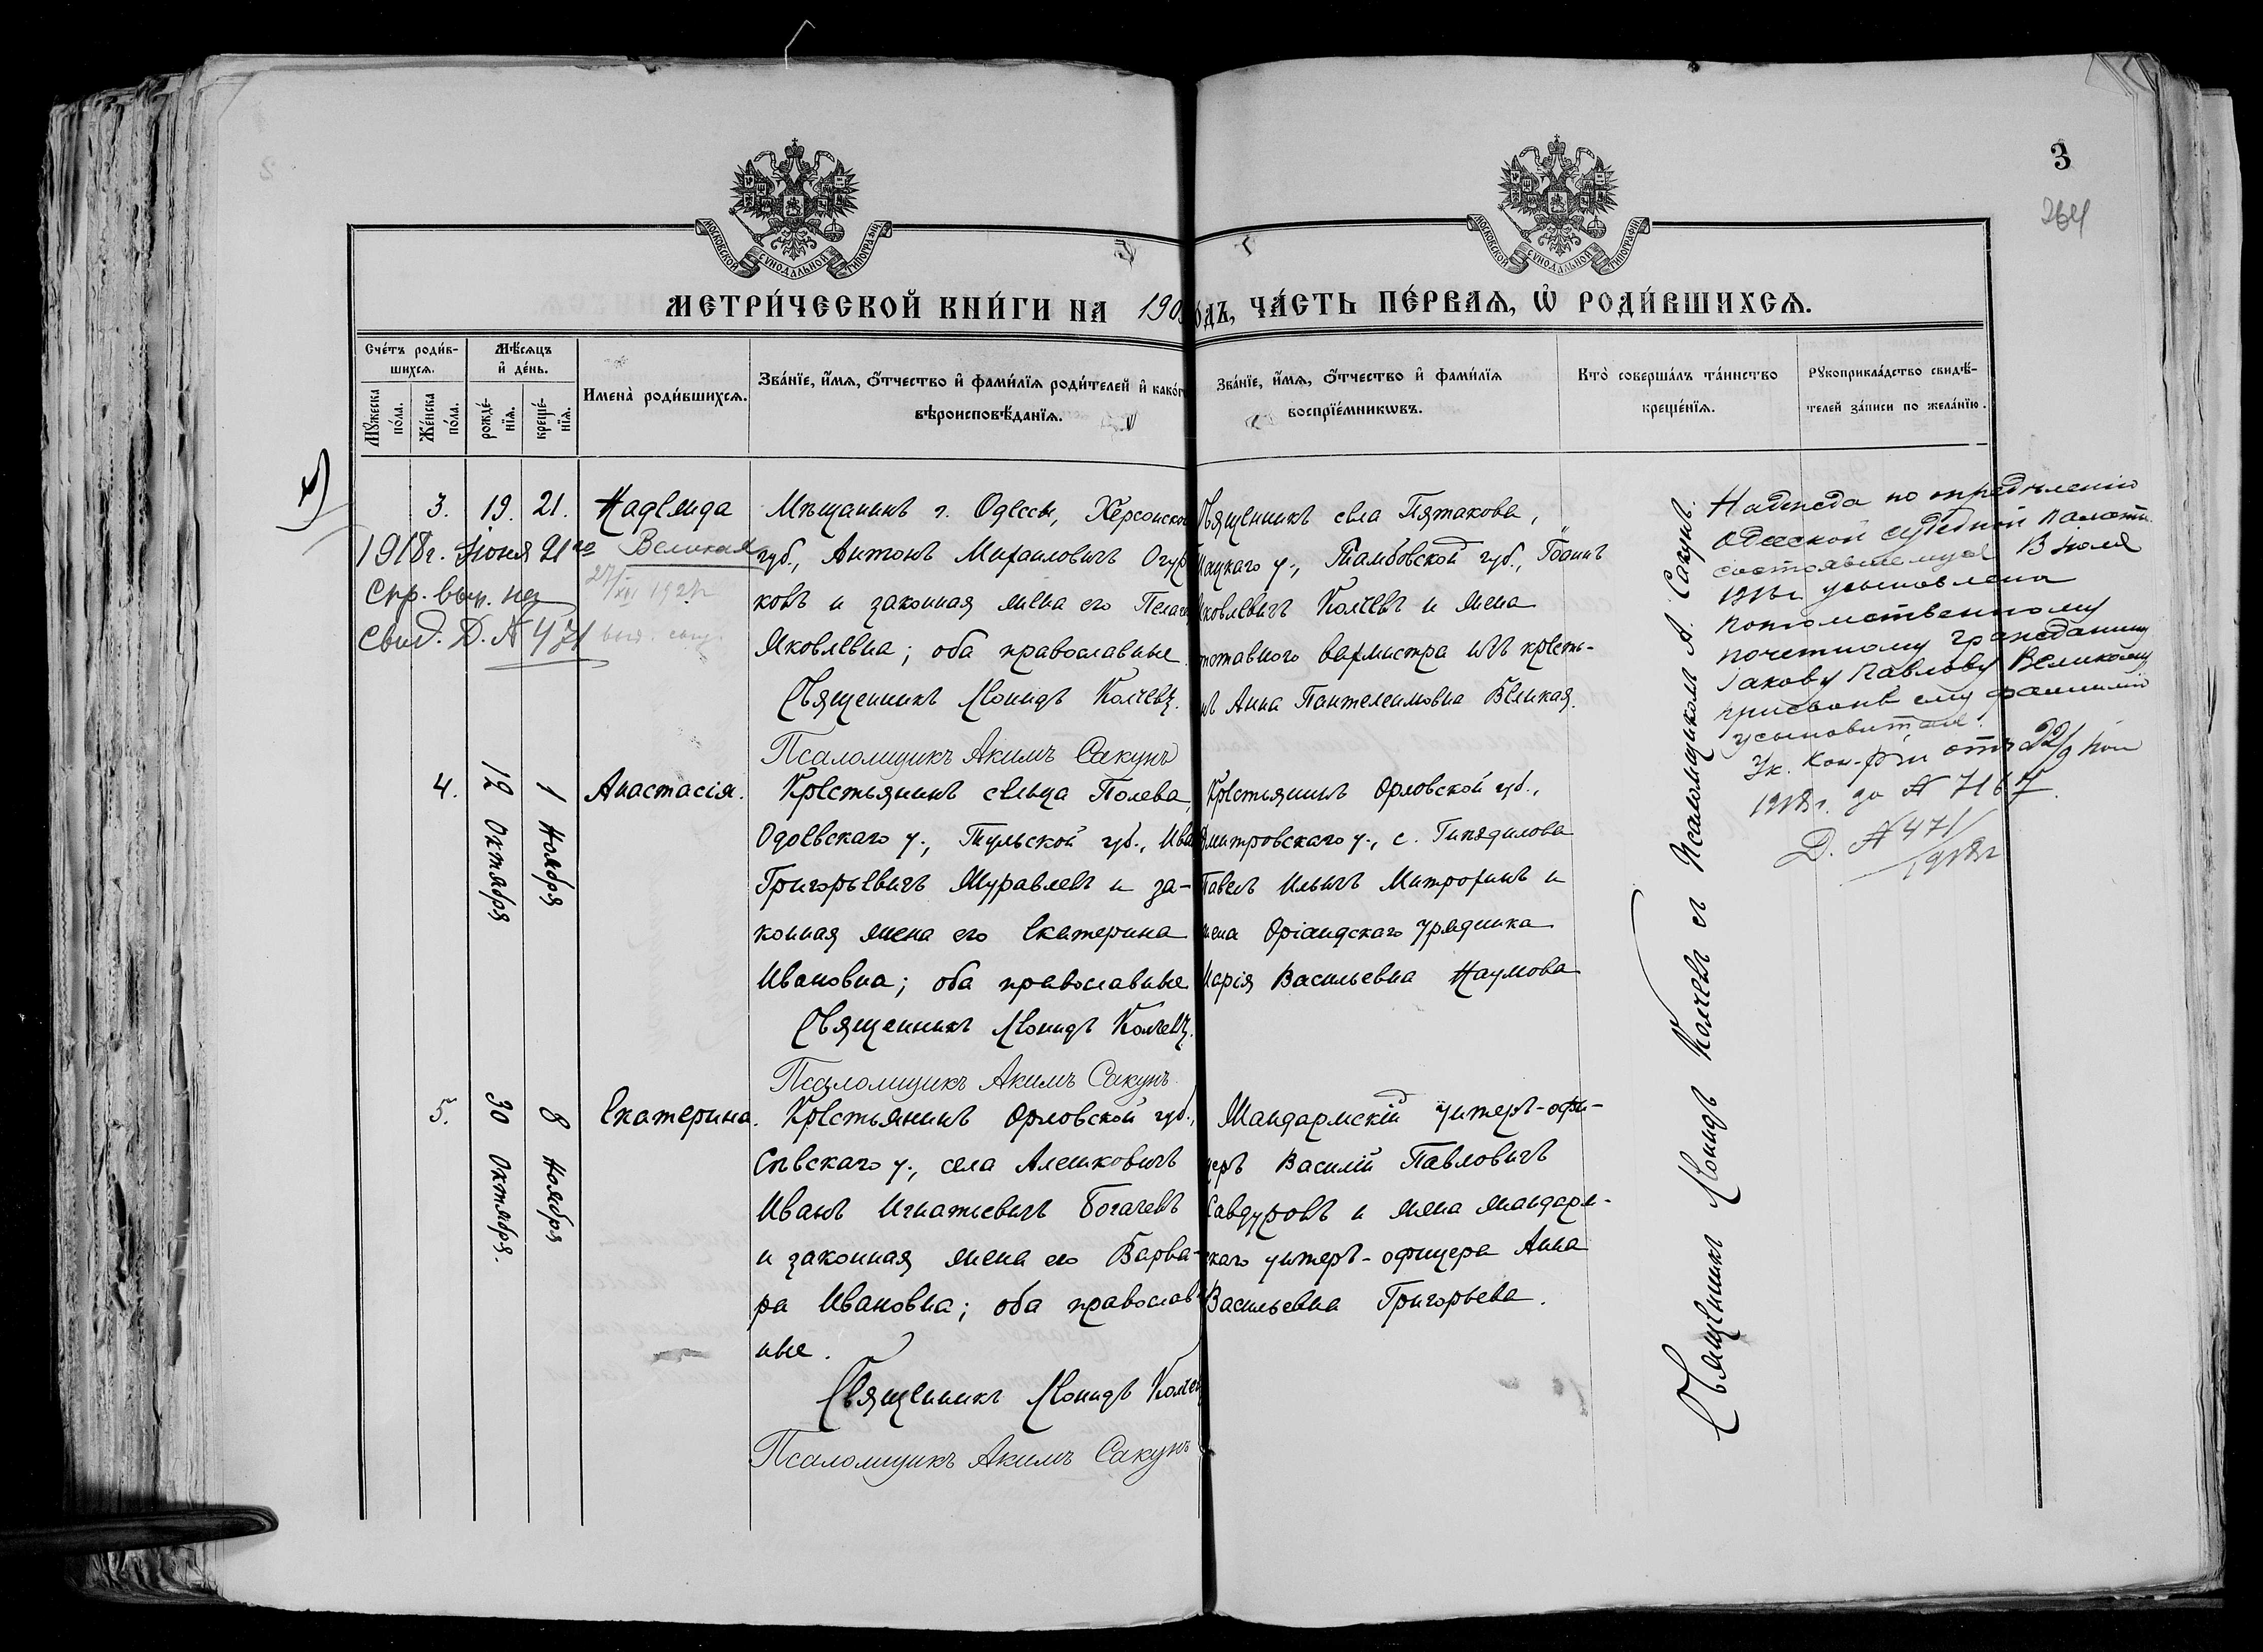 3
264
МОСКОВСКОЙ СѴНОДАЛЬНОЙ ТИПОГРАФІИ
МОСКОВСКОЙ СѴНОДАЛЬНОЙ ТИПОГРАФІИ
МЕТРИ́ЧЕСКОЙ КНИ́ГИ НА 190
ОДЪ, ЧА́СТЬ ПЕ́РВАѦ, Ѡ҆ РОДИ́ВШИХСѦ.
Сче́тъ роди́в-
шихсѧ.
Мꙋжеска по́ла.
Же́нска по́ла.
Мѣ́сѧцъ
и҆ де́нь.
рожде́-
нїѧ.
креще́-
нїѧ.
Имена̀ роди́вшихсѧ.
Зва́нїе, и҆́мѧ, ѻ҆́тчество и҆ фами́лїѧ роди́телей и҆ како́г
вѣроисповѣ́данїѧ.
Зва́нїе, и҆́мѧ, ѻ҆́тчество и҆ фами́лїѧ
воспрїе́мникѡвъ.
Кто̀ соверша́лъ та́инство
креще́нїѧ.
Рꙋкоприкла́дство свидѣ́-
телей за́писи по жела́нїю.
3. 19. 21. Надежда
1918г. Июня 21го Великая
Спр. выд. на 27/XII 192
Свид. Д. № 471 выд.
Мѣщанинъ г. Одессы, Херсонской
губ., Антонъ Михаиловичъ Огур
ковъ и законная жена его Пелаге
Яковлевна; оба православные
Священникъ Леонидъ Колчевъ.
Псаломщикъ Акимъ Сакунъ
Священникъ села Пятакова,
Шацкаго у., Тамбовской губ., Іоаннъ
Яковлевичъ Колчевъ и жена
отставного вахмистра изъ кресть-
нъ Анна Пантелеимовна Великая.
Надежда по опредѣленію
Одесской судебной палаты
состоявшемуся 13 июля
1918г усыновлена
потомственному
почетному гражданину
Іакову Павлову Великому
присвоив ему фамилію
усыновителя.
Ук. Кон-ріи отъ 22/9
1918г. за № 7167.
Д. № 471/
1918г
4. 12 Октября 1 Ноября Анастасія.
Крестьянинъ сельца Полева,
Одоевскаго у., Тульской губ., Ива
Григорьевичъ Журавлевъ и за-
конная жена его Екатерина
Ивановна; оба православные
Священникъ Леонидъ Колчевъ.
Псаломщикъ Акимъ Сакунъ.
Крестьянинъ Орловской губ.,
Дмитровскаго у., с.
Павелъ Ильичъ Митрофинъ и
жена Оріандскаго Урядника
Марія Васильевна Наумова
5. 30 Октября. 8 Ноября Екатерина.
Крестьянинъ Орловской губ.,
Сѣвскаго у., села Алешковичъ
Иванъ Игнатьевичъ Богачевъ
и законная жена его Варва-
ра Ивановна; оба православ-
ные.
Священникъ Леонидъ Колчев
Псаломщикъ Акимъ Сакунъ
Жандармскій Унтеръ-офи-
церъ Василій Павловичъ
Савдуровъ и жена жандарм-
скаго унтеръ-офицера Анна
Васильевна Григорьева.
Священникъ Леонидъ Колчевъ съ Псаломщикомъ А. Сакунъ.